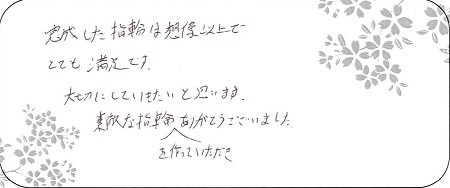 完成した指輪は想像以上で
とても満足です。
大切にしていきたいと思います。
素敵な指輪ありがとうございました
を作っていただき